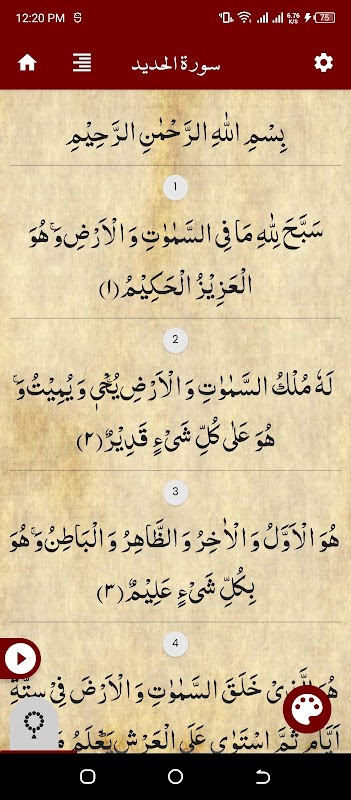 12:20 PM
6.76
K/S
75
سورة الحديد
بِسْمِ اللّٰهِ الرَّحْمٰنِ الرَّحِيْمِ
1
سَبَّحَ لِلّٰهِ مَا فِى السَّمٰوٰتِ وَ الْاَرْضِ‌ۚ وَ هُوَ
الْعَزِيْزُ الْحَكِيْمُ (١)
2
لَهٗ مُلْكُ السَّمٰوٰتِ وَ الْاَرْضِ‌ۚ يُحْىٖ وَ يُمِيْتُ‌ۚ وَ
هُوَ عَلٰى كُلِّ شَىْءٍ قَدِيْرٌ (٢)
3
هُوَ الْاَوَّلُ وَ الْاٰخِرُ وَ الظَّاهِرُ وَ الْبَاطِنُ‌ۚ وَ هُوَ
بِكُلِّ شَىْءٍ عَلِيْمٌ (٣)
4
هُوَ الَّذِىْ خَلَقَ السَّمٰوٰتِ وَ الْاَرْضَ فِىْ سِتَّةِ
اَيَّامٍ ثُمَّ اسْتَوٰى عَلَى الْعَرْشِ‌ؕ يَعْلَمُ